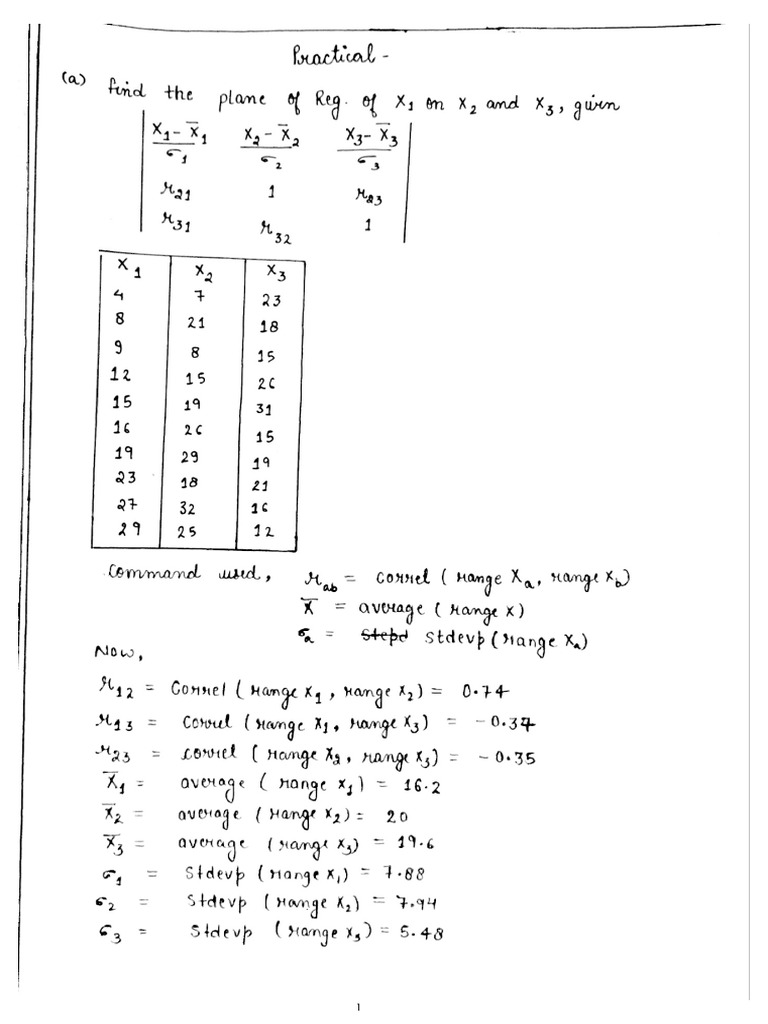 Practical -
(a) Find the plane of Reg. of X1 on X2 and X3, given
X1 - X̄1 / σ1   X2 - X̄2 / σ2   X3 - X̄3 / σ3
r21   1   r23
r31   r32   1
X1   X2   X3
4   7   23
8   21   18
9   8   15
12   15   26
15   19   31
16   26   15
19   29   19
23   18   21
27   32   16
29   25   12
Command used, rab = correl (range Xa, range Xb)
X̄ = average (range x)
σa = Stepd Stdevp (range Xa)
Now,
r12 = Correl (range X1, range X2) = 0.74
r13 = Correl (range X1, range X3) = -0.37
r23 = correl (range X2, range X3) = -0.35
X̄1 = average (range X1) = 16.2
X̄2 = average (range X2) = 20
X̄3 = average (range X3) = 19.6
σ1 = Stdevp (range X1) = 7.88
σ2 = Stdevp (range X2) = 7.94
σ3 = Stdevp (range X3) = 5.48
1